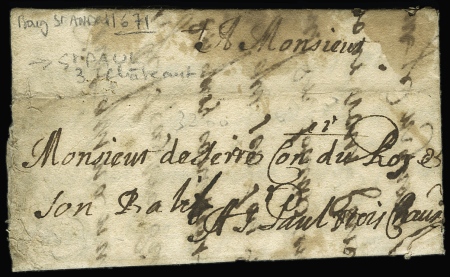 Bourg St Andeol 1671
→ St PAUL
3 Châteaux
A Monsieur
Monsieur de Serre Con.er du Roy et
son Balif A St Paul Trois Chau